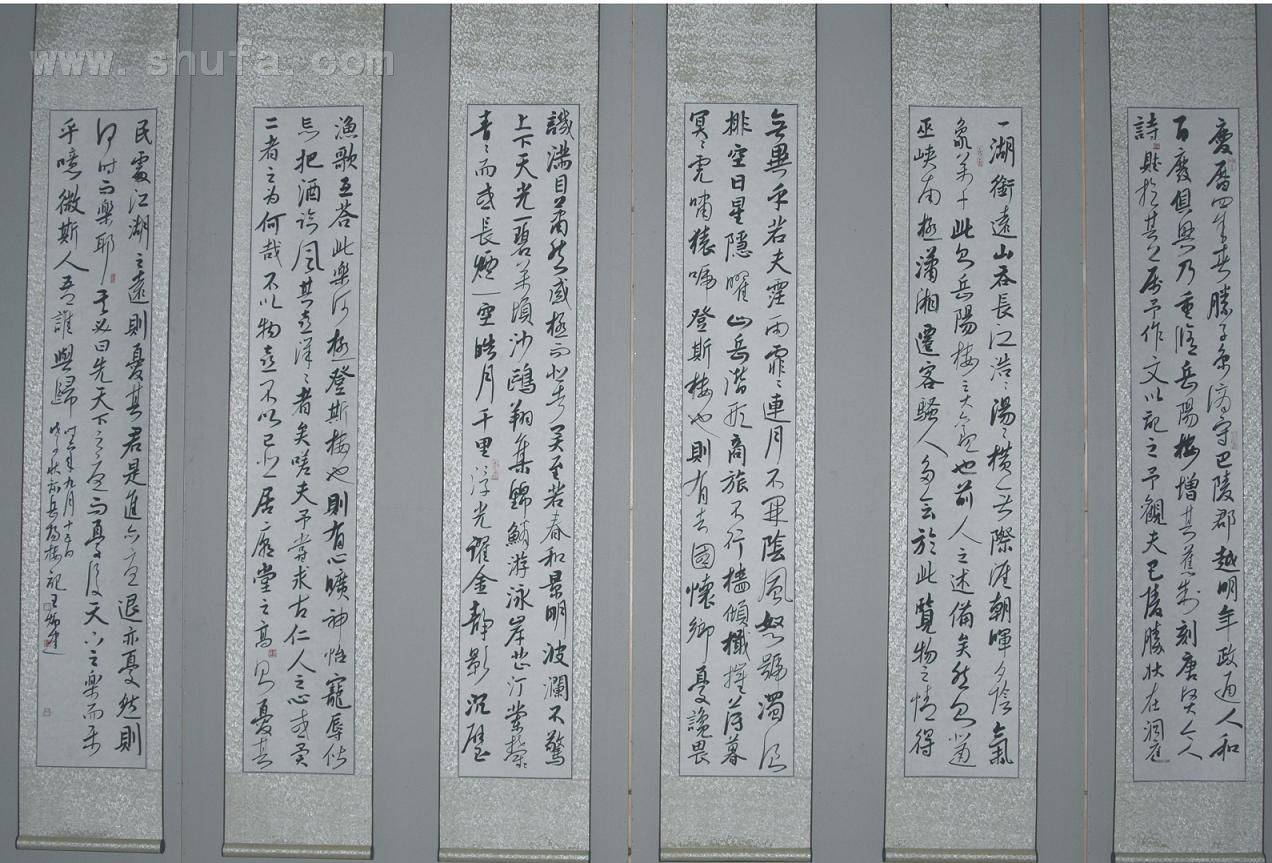 www.shufa.com
慶曆四年春滕子京谪守巴陵郡越明年政通人和
百廢俱興乃重修岳陽樓增其舊制刻唐賢今人
詩賦於其上属予作文以記之予觀夫巴陵勝狀在洞庭
一湖銜遠山吞長江浩〻湯〻橫無際涯朝暉夕陰氣
象萬千此則岳陽樓之大觀也前人之述備矣然則北通
巫峽南極瀟湘遷客騷人多会於此覽物之情得
無異乎若夫霪雨霏〻連月不開陰風怒號濁浪
排空日星隱曜山岳潛形商旅不行檣傾檝摧薄暮
冥〻虎嘯猿啼登斯樓也則有去國懷鄉憂讒畏
譏滿目蕭然感極而悲者矣至若春和景明波瀾不驚
上下天光一碧萬頃沙鷗翔集錦鱗游泳岸芷汀蘭鬱
青〻而或長煙一空皓月千里浮光躍金靜影沉璧
漁歌互答此樂何極登斯樓也則有心曠神怡寵辱偕
忘把酒臨風其喜洋〻者矣嗟夫予嘗求古仁人之心或異
二者之为何哉不以物喜不以己悲居廟堂之高則憂其
民處江湖之遠則憂其君是進亦憂退亦憂然則
何時而樂耶其必曰先天下之憂而憂後天下之樂而樂
乎噫微斯人吾誰與歸時六年九月十五日
秋录岳陽樓記王